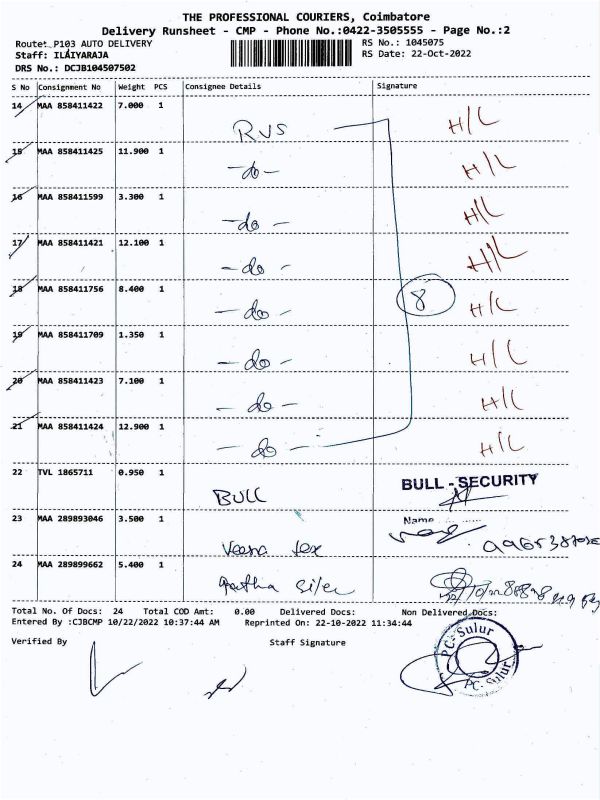 THE PROFESSIONAL COURIERS, Coimbatore
Delivery Runsheet - CMP - Phone No.:0422-3505555 - Page No.:2
Route: P103 AUTO DELIVERY RS No.: 1045075
Staff: ILAIYARAJA RS Date: 22-Oct-2022
DRS No.: DCJB104507502
S No Consignment No Weight PCS Consignee Details Signature
14 MAA 858411422 7.000 1 RVS H/L
15 MAA 858411425 11.900 1 -do- H/L
16 MAA 858411599 3.300 1 -do- H/L
17 MAA 858411421 12.100 1 -do- H/L
18 MAA 858411756 8.400 1 -do- 8 H/L
19 MAA 858411709 1.350 1 -do- H/L
20 MAA 858411423 7.100 1 -do- H/L
21 MAA 858411424 12.900 1 -do- H/L
22 TVL 1865711 0.950 1 BULL BULL - SECURITY
23 MAA 289893046 3.500 1 Name
24 MAA 289899662 5.400 1
Total No. Of Docs: 24 Total COD Amt: 0.00 Delivered Docs: Non Delivered Docs:
Entered By :CJBCMP 10/22/2022 10:37:44 AM Reprinted On: 22-10-2022 11:34:44
Verified By Staff Signature
PC-Sulur
PC-Sulur